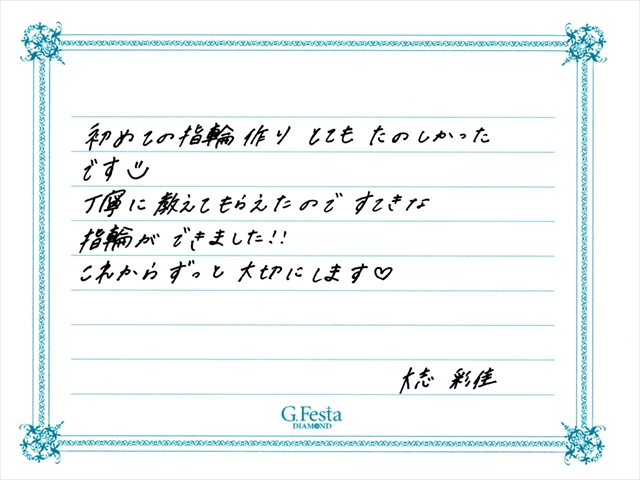 初めての指輪作り とても たのしかった
です
丁寧に教えてもらえたので すてきな
指輪が できました!!
これからずっと 大切にします♡
大志 彩佳
G.Festa
DIAMOND